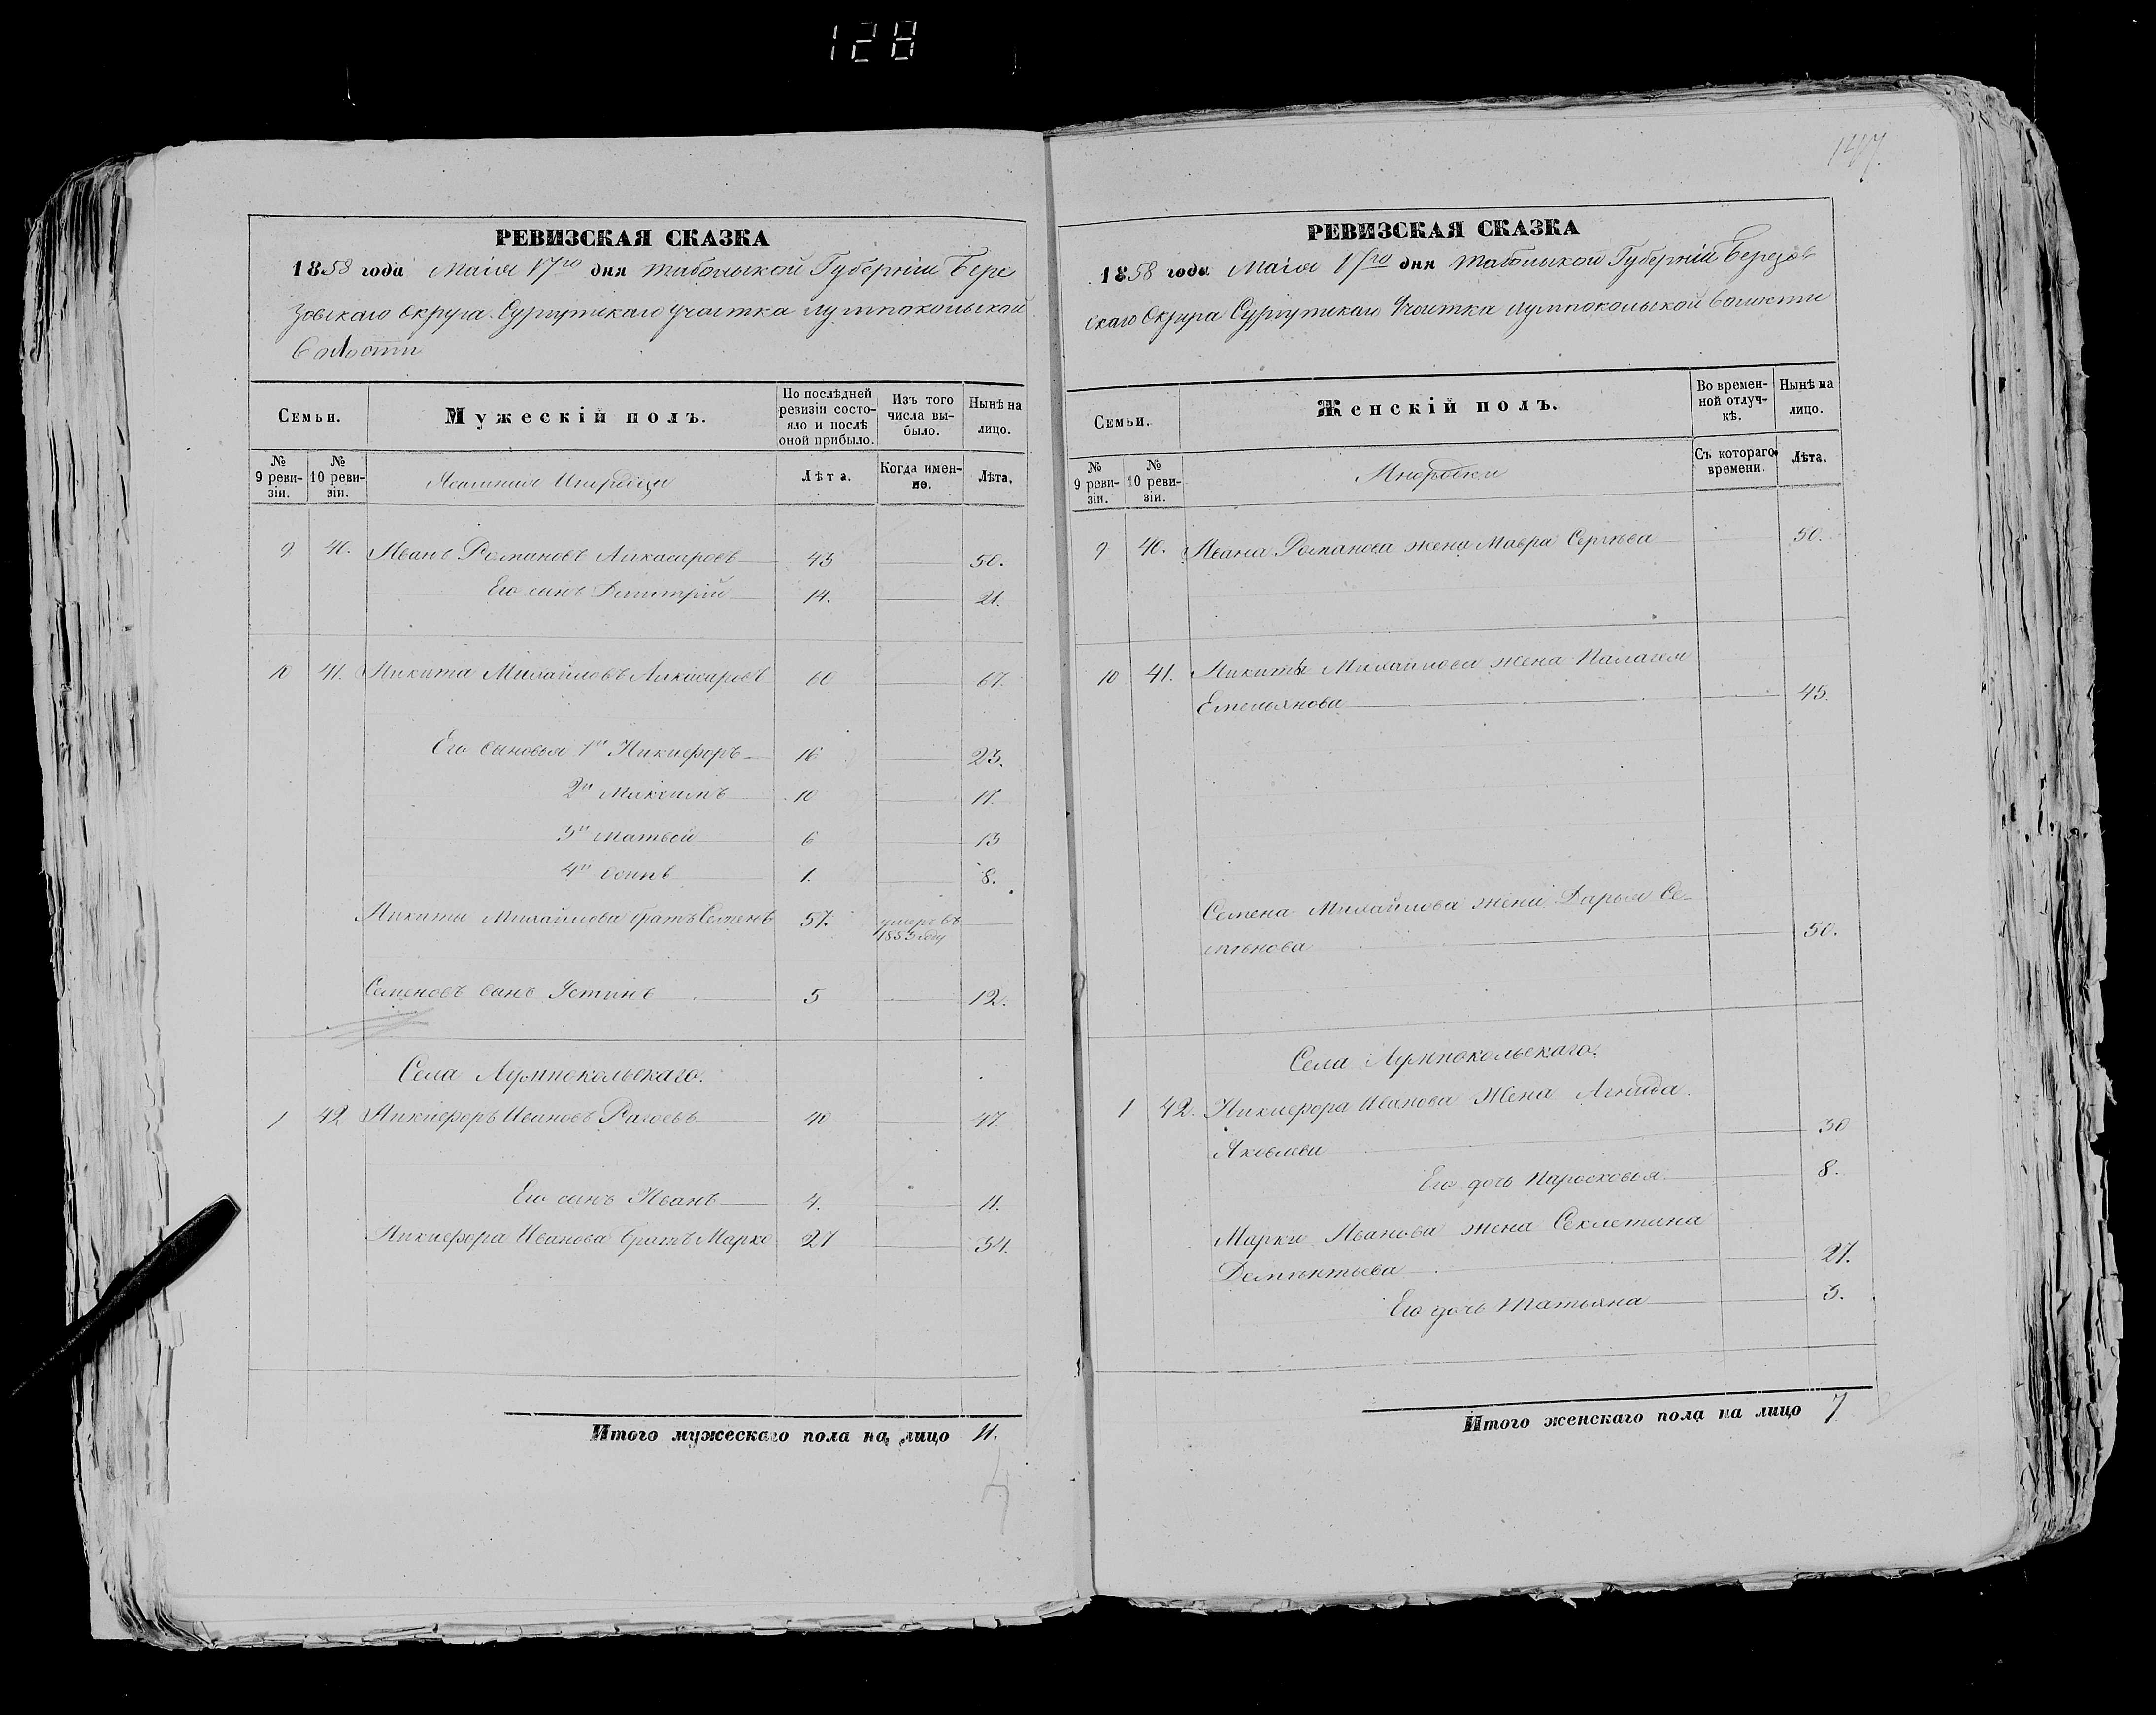 128
РЕВИЗСКАЯ СКАЗКА
1858 года Маія 17го дня Тобольской Губерніи Бере
зовскаго Округа Сургутскаго Участка Лумпокольской
Волости
Семьи.
Мужескій полъ.
По послѣдней ревизіи состояло и послѣ оной прибыло.
Изъ того числа выбыло.
Нынѣ на лицо.
№ 9 ревизіи.
№ 10 ревизіи.
Ясашныя Инородцы
Лѣта.
Когда именно.
Лѣта.
9 40. Иванъ Романовъ Алкасаровъ 43 50.
Его сынъ Дмитрій 14. 21.
10 41. Никита Михайловъ Алкасаровъ 60 67.
Его сыновья 1й Никифоръ 16 23.
2й Максимъ 10 17.
3й Матвей 6 13
4й Осипъ 1. 8.
Никиты Михайлова братъ Семенъ 57. умеръ въ
1853 году
Семеновъ сынъ Устинъ 5 12.
Села Лумпокольскаго.
1 42 Никифоръ Ивановъ 40 47.
Его сынъ Иванъ 4. 11.
Никифора Иванова братъ Марко 27 34.
Итого мужескаго пола на лицо 11.
147
РЕВИЗСКАЯ СКАЗКА
1858 года Маія 17го дня Тобольской Губерніи Березов
скаго Округа Сургутскаго Участка Лумпокольской Волости
Семьи.
Женскій полъ.
Во временной отлучкѣ.
Нынѣ на лицо.
№ 9 ревизіи.
№ 10 ревизіи.
Инородки
Съ котораго времени.
Лѣта.
9 40. Ивана Романова жена Мавра Сергѣева 50.
10 41. Никиты Михайлова жена Палагея
Емельянова 45.
Семена Михайлова жена Дарья Се-
мѣнова 50.
Села Лумпокольскаго.
1 42. Никифора Иванова Жена
Яковлева 30
Его дочь Парасковья 8.
Марки Иванова жена Секлетина
Дементьева 27.
Его дочь Татьяна 3.
Итого женскаго пола на лицо 7